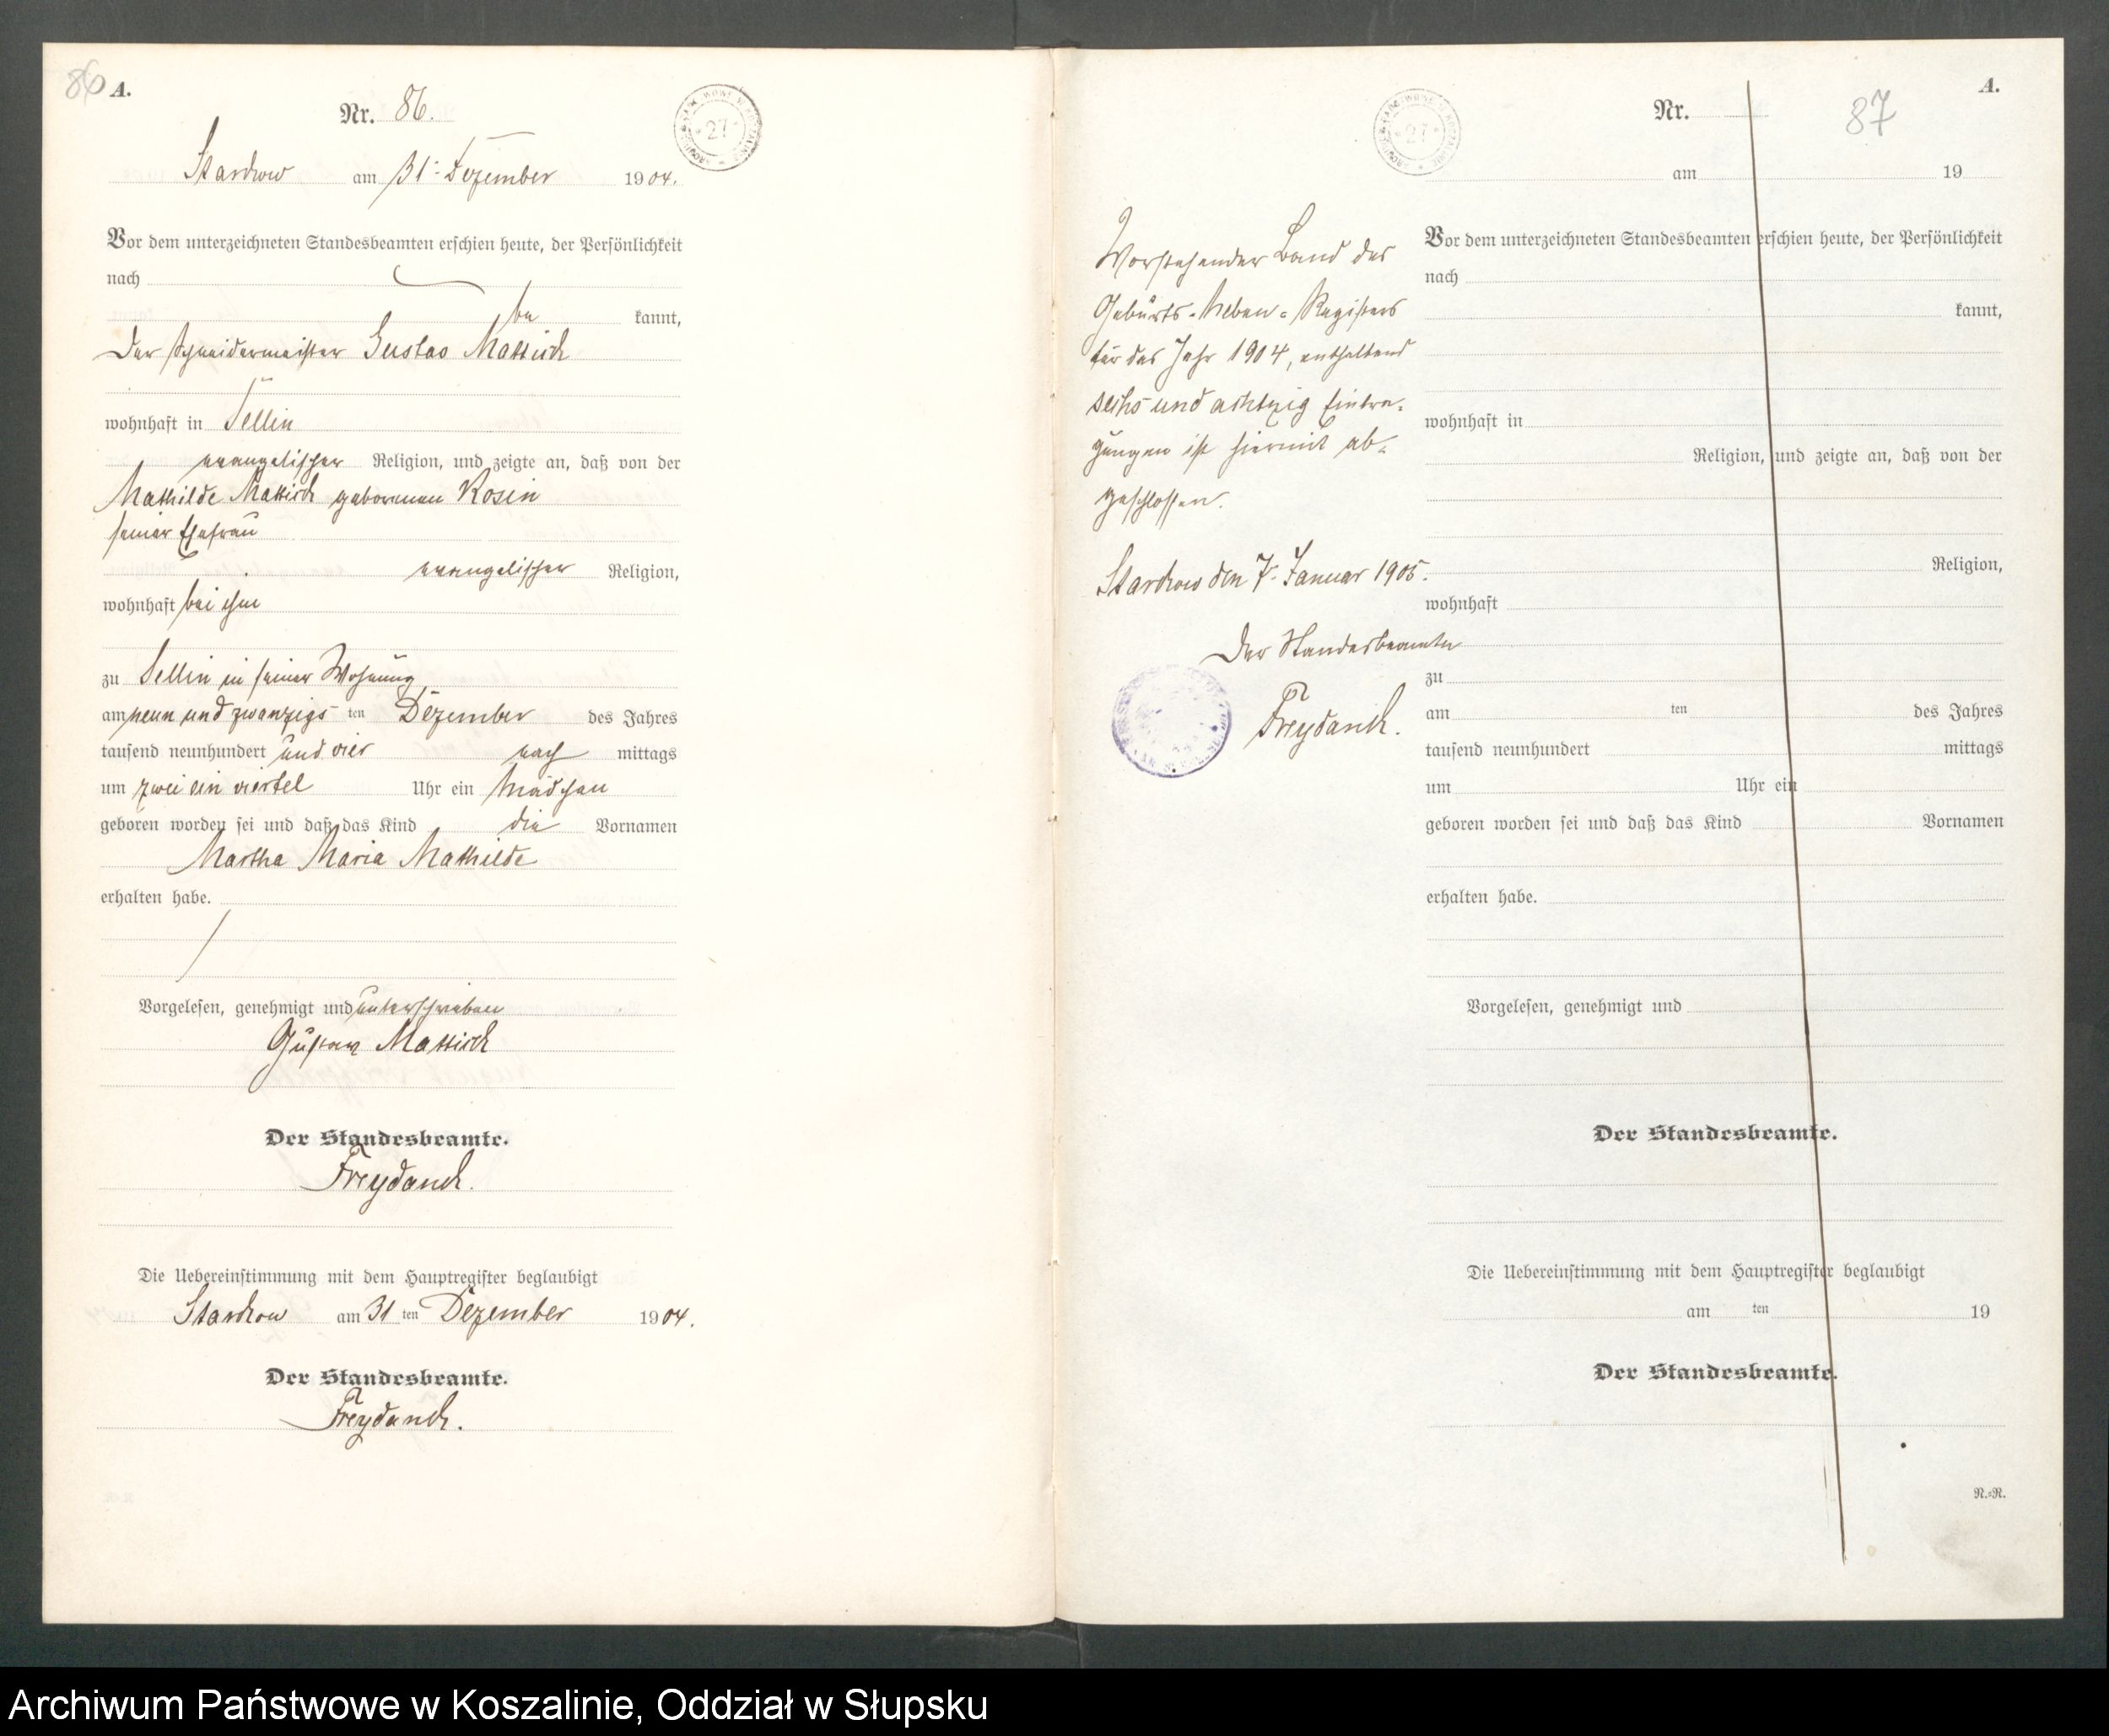 86 A.
Nr. 86.
27
Starkow am 31. Dezember 1904.
Vor dem unterzeichneten Standesbeamten erschien heute, der Persönlichkeit
nach
be kannt,
der Schneidermeister Gustav Mattick
wohnhaft in Sellin
evangelischer Religion, und zeigte an, daß von der
Mathilde Mattick geborenen Rosin
seiner Ehefrau
evangelischer Religion,
wohnhaft bei ihm
zu Sellin in seiner Wohnung
am neun und zwanzigs ten Dezember des Jahres
tausend neunhundert und vier nach mittags
um zwei ein viertel Uhr ein Mädchen
geboren worden sei und daß das Kind die Vornamen
Martha Maria Mathilde
erhalten habe.
Vorgelesen, genehmigt und unterschrieben
Gustav Mattick
Der Standesbeamte.
Freydanck.
Die Uebereinstimmung mit dem Hauptregister beglaubigt
Starkow am 31 ten Dezember 1904.
Der Standesbeamte.
Freydanck.
A.
Nr. 87
27
am 19
Vorstehender Band des
Geburts-Neben-Registers
für das Jahr 1904, enthaltend
sechs und achtzig Eintra-
gungen ist hiermit ab-
geschlossen.
Starkow den 7. Januar 1905.
Der Standesbeamte
Freydanck.
Vor dem unterzeichneten Standesbeamten erschien heute, der Persönlichkeit
nach
kannt,
wohnhaft in
Religion, und zeigte an, daß von der
Religion,
wohnhaft
zu
am ten des Jahres
tausend neunhundert mittags
um Uhr ein
geboren worden sei und daß das Kind Vornamen
erhalten habe.
Vorgelesen, genehmigt und
Der Standesbeamte.
Die Uebereinstimmung mit dem Hauptregister beglaubigt
am ten 19
Der Standesbeamte.
N.-R.
Archiwum Państwowe w Koszalinie, Oddział w Słupsku